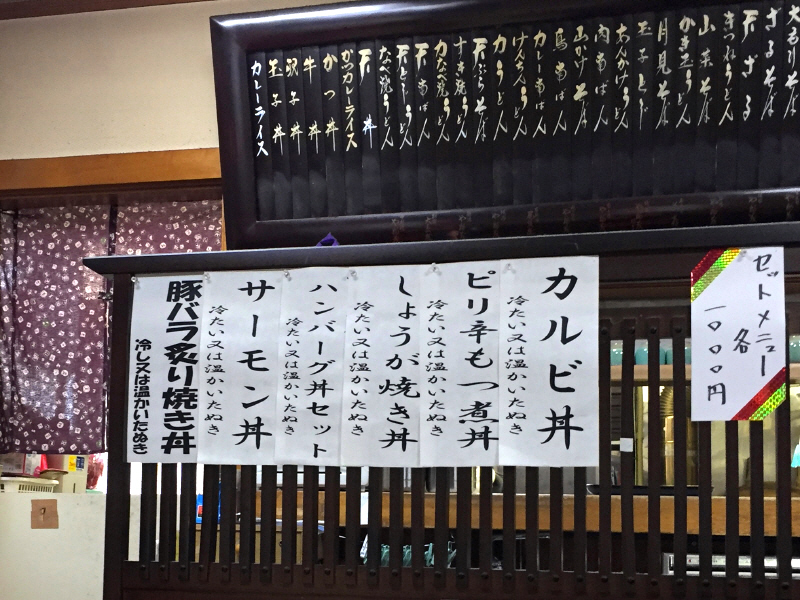 大もりそば
ざるそば
天ざる
きつねうどん
山菜そば
かき玉うどん
月見そば
玉子とじ
あんかけうどん
肉南ばん
山かけそば
鳥南ばん
カレー南ばん
けんちんうどん
力うどん
天ぷらそば
すき焼うどん
力なべ焼うどん
天南ばん
天とじうどん
なべ焼うどん
天丼
かつカレーライス
かつ丼
牛丼
沢子丼
玉子丼
カレーライス
セットメニュー
各
一〇〇〇円
カルビ丼
冷たい又は温かいたぬき
ピリ辛もつ煮丼
冷たい又は温かいたぬき
しょうが焼き丼
冷たい又は温かいたぬき
ハンバーグ丼セット
冷たい又は温かいたぬき
サーモン丼
冷たい又は温かいたぬき
豚バラ炙り焼き丼
冷し又は温かいたぬき